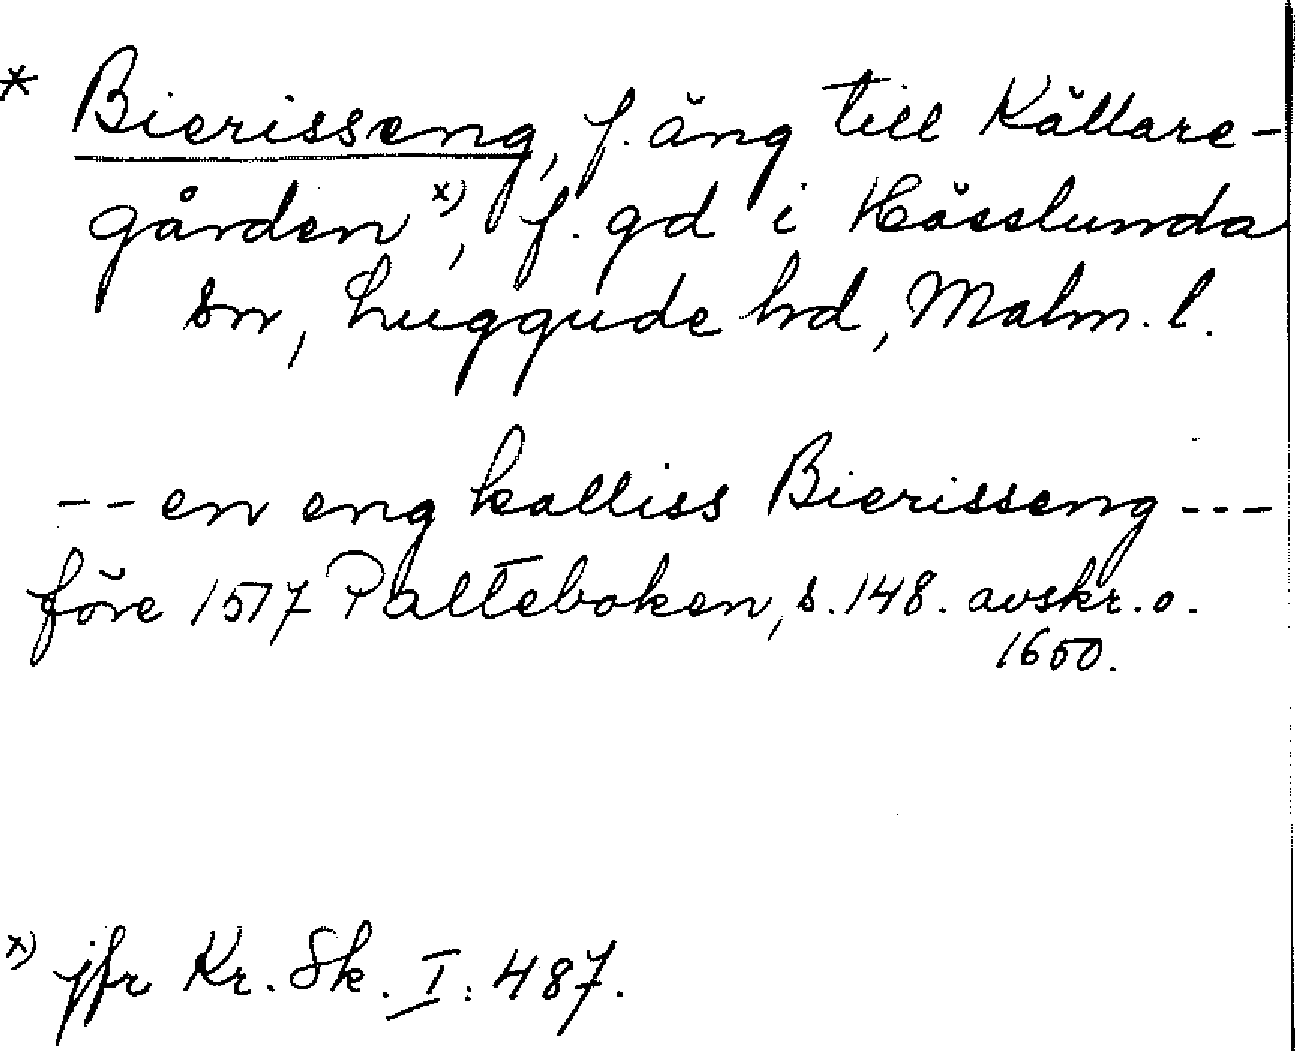 * Bierisseng, f. äng till Källare-
gården x), f. gd i Hässlunda
sn, Luggude hd, Malm. l.
-- en eng kalliss Bierisseng ---
före 1517 Palteboken, s. 148. avskr. o.
1650.
x) jfr Kr. Sk. I: 487.